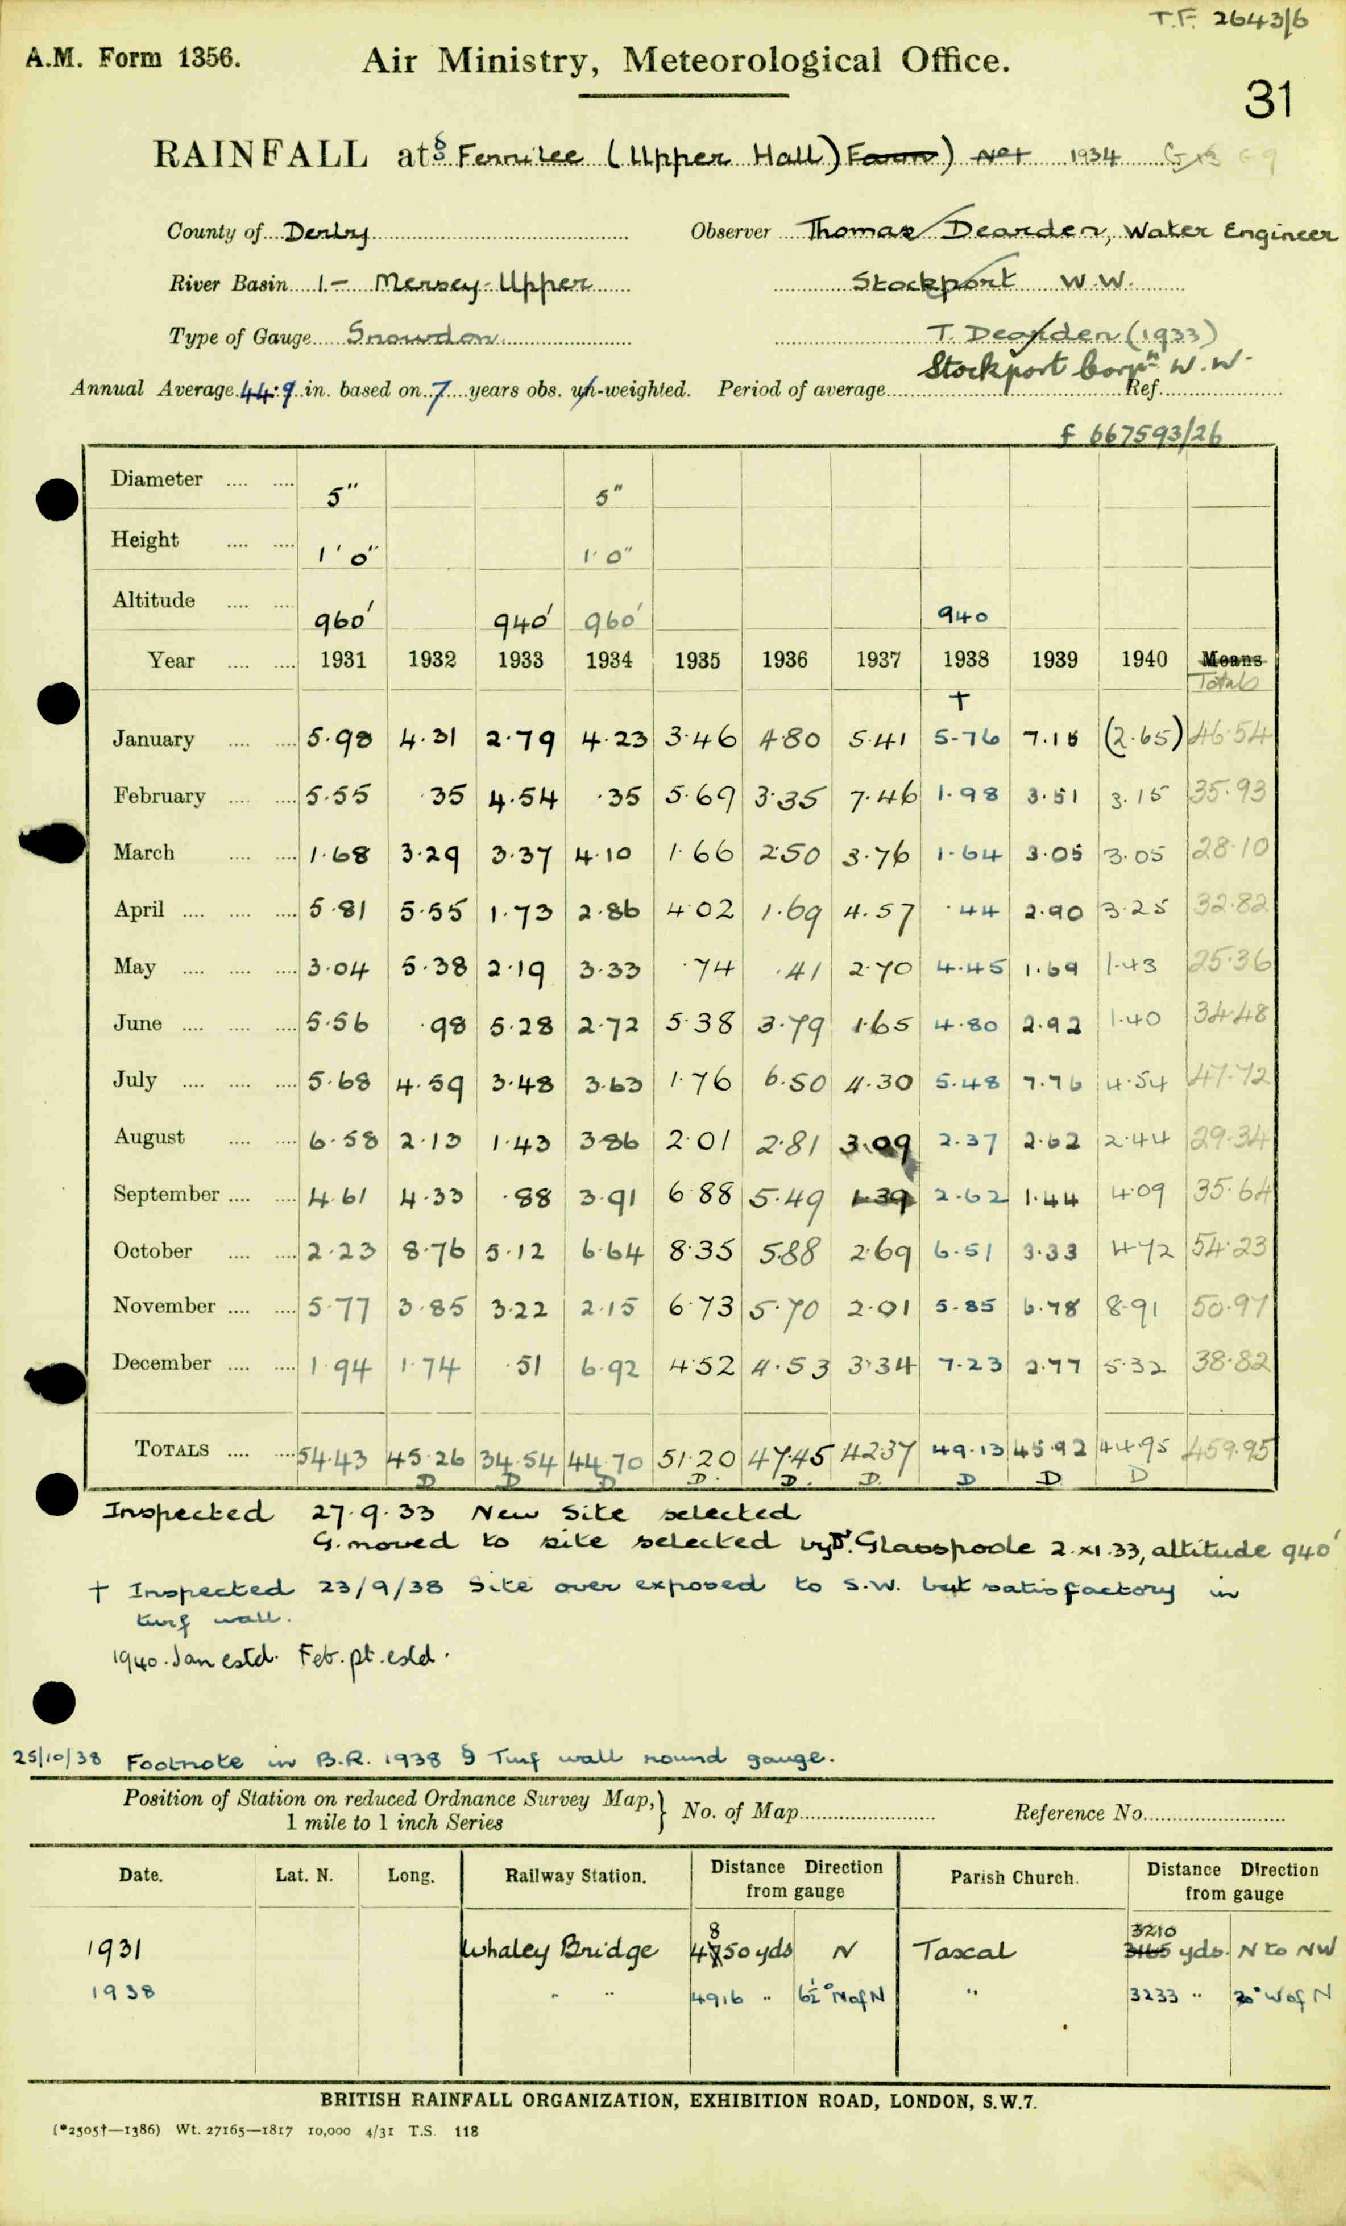 T.F. 2643/6
A.M. Form 1356. Air Ministry, Meteorological Office.
31
RAINFALL at § Fernilee (Upper Hall) Farm) No 1 1934
County of Derby Observer Thomas Dearden, Water Engineer
River Basin 1.— Mersey-Upper Stockport W.W.
Type of Gauge Snowdon T. Dearden (1933)
Stockport Corpn W.W.
Annual Average 44.9 in. based on 7 years obs. un-weighted. Period of average Ref.
f 667593/26
Diameter 5" 5"
Height 1' 0" 1' 0"
Altitude 960' 940' 960' 940
Year 1931 1932 1933 1934 1935 1936 1937 1938 1939 1940 Means
Totals
†
January 5.98 4.31 2.79 4.23 3.46 4.80 5.41 5.76 7.15 (2.65) 46.54
February 5.55 .35 4.54 .35 5.69 3.35 7.46 1.98 3.51 3.15 35.93
March 1.68 3.29 3.37 4.10 1.66 2.50 3.76 1.64 3.05 3.05 28.10
April 5.81 5.55 1.73 2.86 4.02 1.69 4.57 .44 2.90 3.25 32.82
May 3.04 5.38 2.19 3.33 .74 .41 2.70 4.45 1.69 1.43 25.36
June 5.56 .98 5.28 2.72 5.38 3.79 1.65 4.80 2.92 1.40 34.48
July 5.68 4.59 3.48 3.63 1.76 6.50 4.30 5.48 7.76 4.54 47.72
August 6.58 2.13 1.43 3.86 2.01 2.81 3.09 2.37 2.62 2.44 29.34
September 4.61 4.33 .88 3.91 6.88 5.49 1.39 2.62 1.44 4.09 35.64
October 2.23 8.76 5.12 6.64 8.35 5.88 2.69 6.51 3.33 4.72 54.23
November 5.77 3.85 3.22 2.15 6.73 5.70 2.01 5.85 6.78 8.91 50.97
December 1.94 1.74 .51 6.92 4.52 4.53 3.34 7.23 2.77 5.32 38.82
Totals 54.43 45.26 34.54 44.70 51.20 47.45 42.37 49.13 45.92 44.95 459.95
D D D D. D. D. D D D
Inspected 27.9.33 New Site selected
G. moved to site selected by Dr. Glasspoole 2.XI.33, altitude 940'
† Inspected 23/9/38 Site over exposed to S.W. but satisfactory in
turf wall.
1940. Jan estd. Feb. pt. estd.
25/10/38 Footnote in B.R. 1938 § Turf wall round gauge.
Position of Station on reduced Ordnance Survey Map, } No. of Map Reference No.
1 mile to 1 inch Series
Date. Lat. N. Long. Railway Station. Distance Direction from gauge Parish Church. Distance Direction from gauge
8 3210
1931 Whaley Bridge 4750 yds N Taxcal 3165 yds. N to NW
1938 " " 4916 " 6½° N of N " 3233 " 20° W of N
BRITISH RAINFALL ORGANIZATION, EXHIBITION ROAD, LONDON, S.W.7.
(*2505†—1386) Wt. 27165—1817 10,000 4/31 T.S. 118